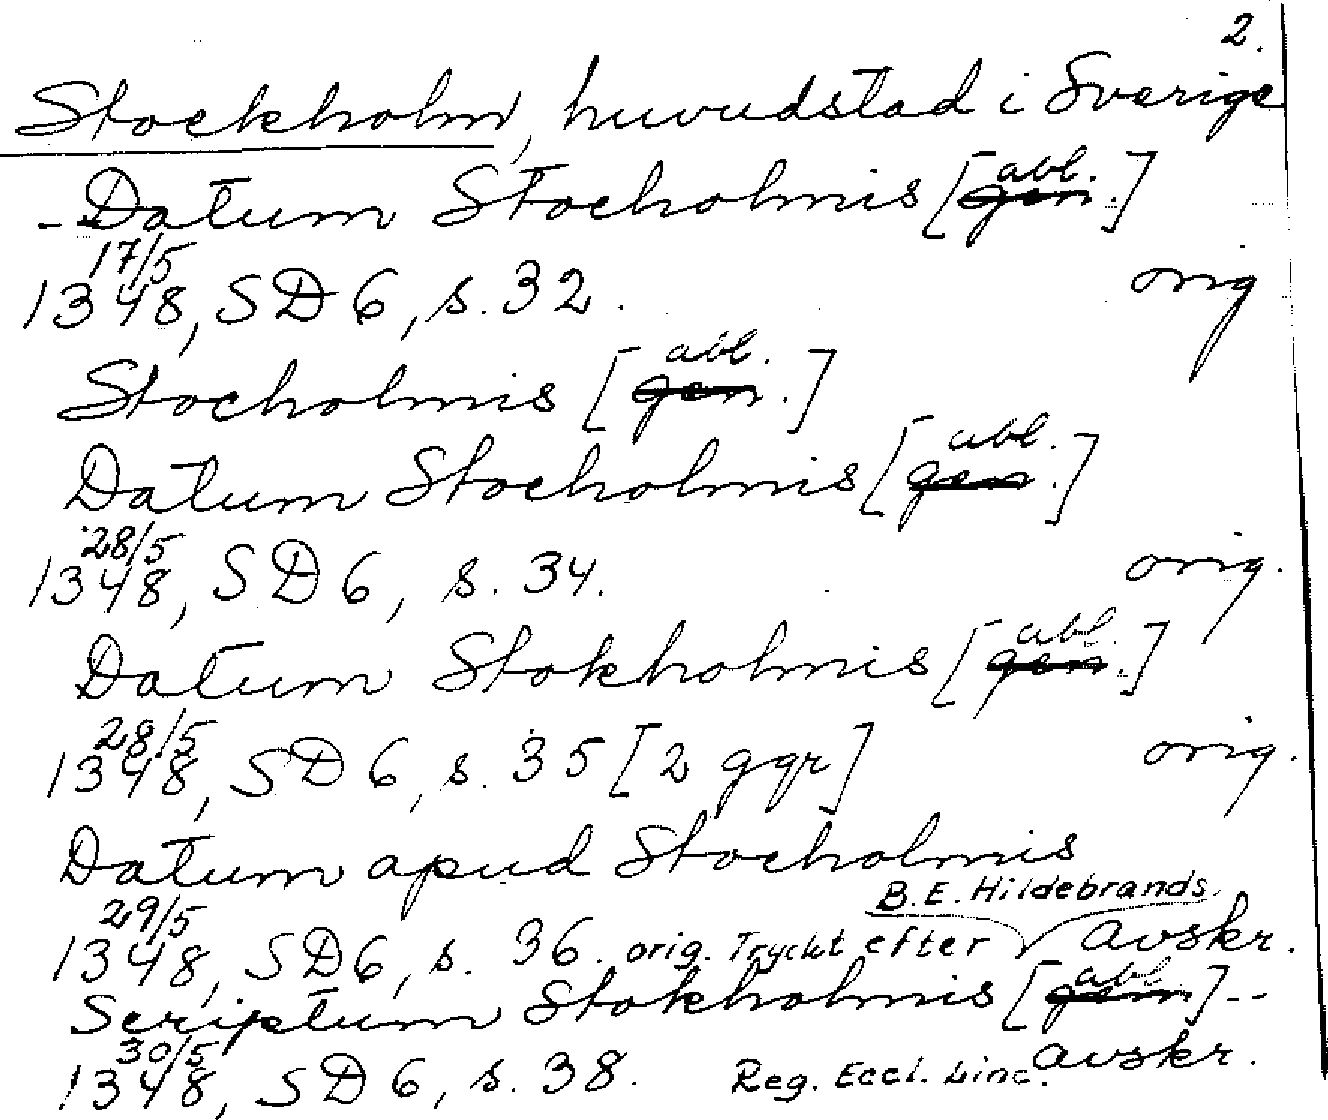 2.
Stockholm, huvudstad i Sverige
- Datum Stocholmis [gen. abl.]
17/5
1348, SD 6, s. 32. orig
Stocholmis [gen. abl.]
Datum Stocholmis [gen. abl.]
28/5
1348, SD 6, s. 34. orig.
Datum Stokholmis [gen. abl.]
28/5
1348, SD 6, s. 35 [2 ggr] orig.
Datum apud Stocholmis
B.E. Hildebrands
29/5
1348, SD 6, s. 36. orig. Tryckt efter avskr.
Scriptum Stokholmis [gen. abl.] --
30/5
1348, SD 6, s. 38. Reg. Eccl. Linc. avskr.